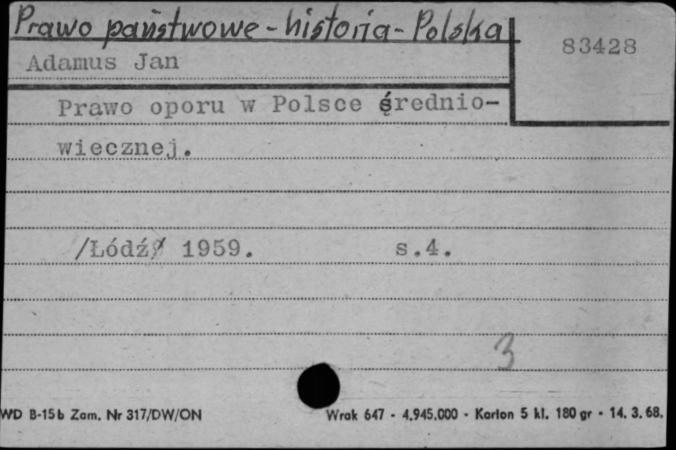 Prawo państwowe - historia - Polska
83428
Adamus Jan
Prawo oporu w Polsce średnio-
wiecznej.
/Łódź/ 1959. s.4.
3
WD B-15b Zam. Nr 317/DW/ON Wrak 647 - 4.945.000 - Karton 5 kl. 180 gr - 14. 3. 68.